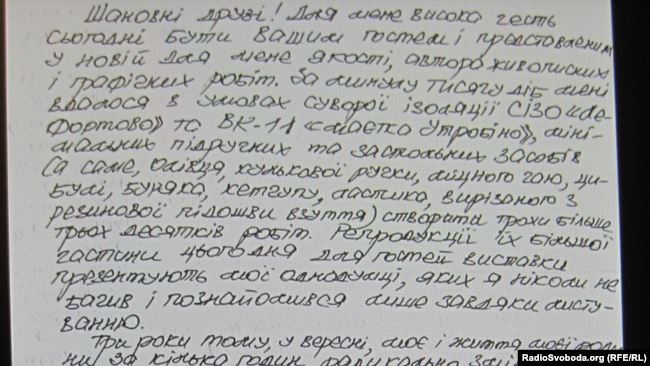 Шановні друзі! Для мене висока честь
сьогодні бути вашим гостем і представленим
у новій для мене якості, автора живописних
і графічних робіт. За минулу тисячу діб мені
вдалося в умовах суворої ізоляції СІЗО «Ле-
фортово» та ВК-11 «маєтка Утробіно», міні-
мальних підручних та застольних засобів
(а саме, олівця, кулькової ручки, міцного чаю, ци-
булі, буряка, кетчупу, ластика, вирізаного з
резинової підошви взуття) створити трохи більше
трьох десятків робіт. Репродукції їх більшої
частини цього дня для гостей виставки
презентують мої однодумці, яких я ніколи не
бачив і познайомився лише завдяки листу-
ванню.
Три роки тому, у вересні, моє і життя моєї роди-
ни за кілька годин радикально
RadioSvoboda.org (RFE/RL)